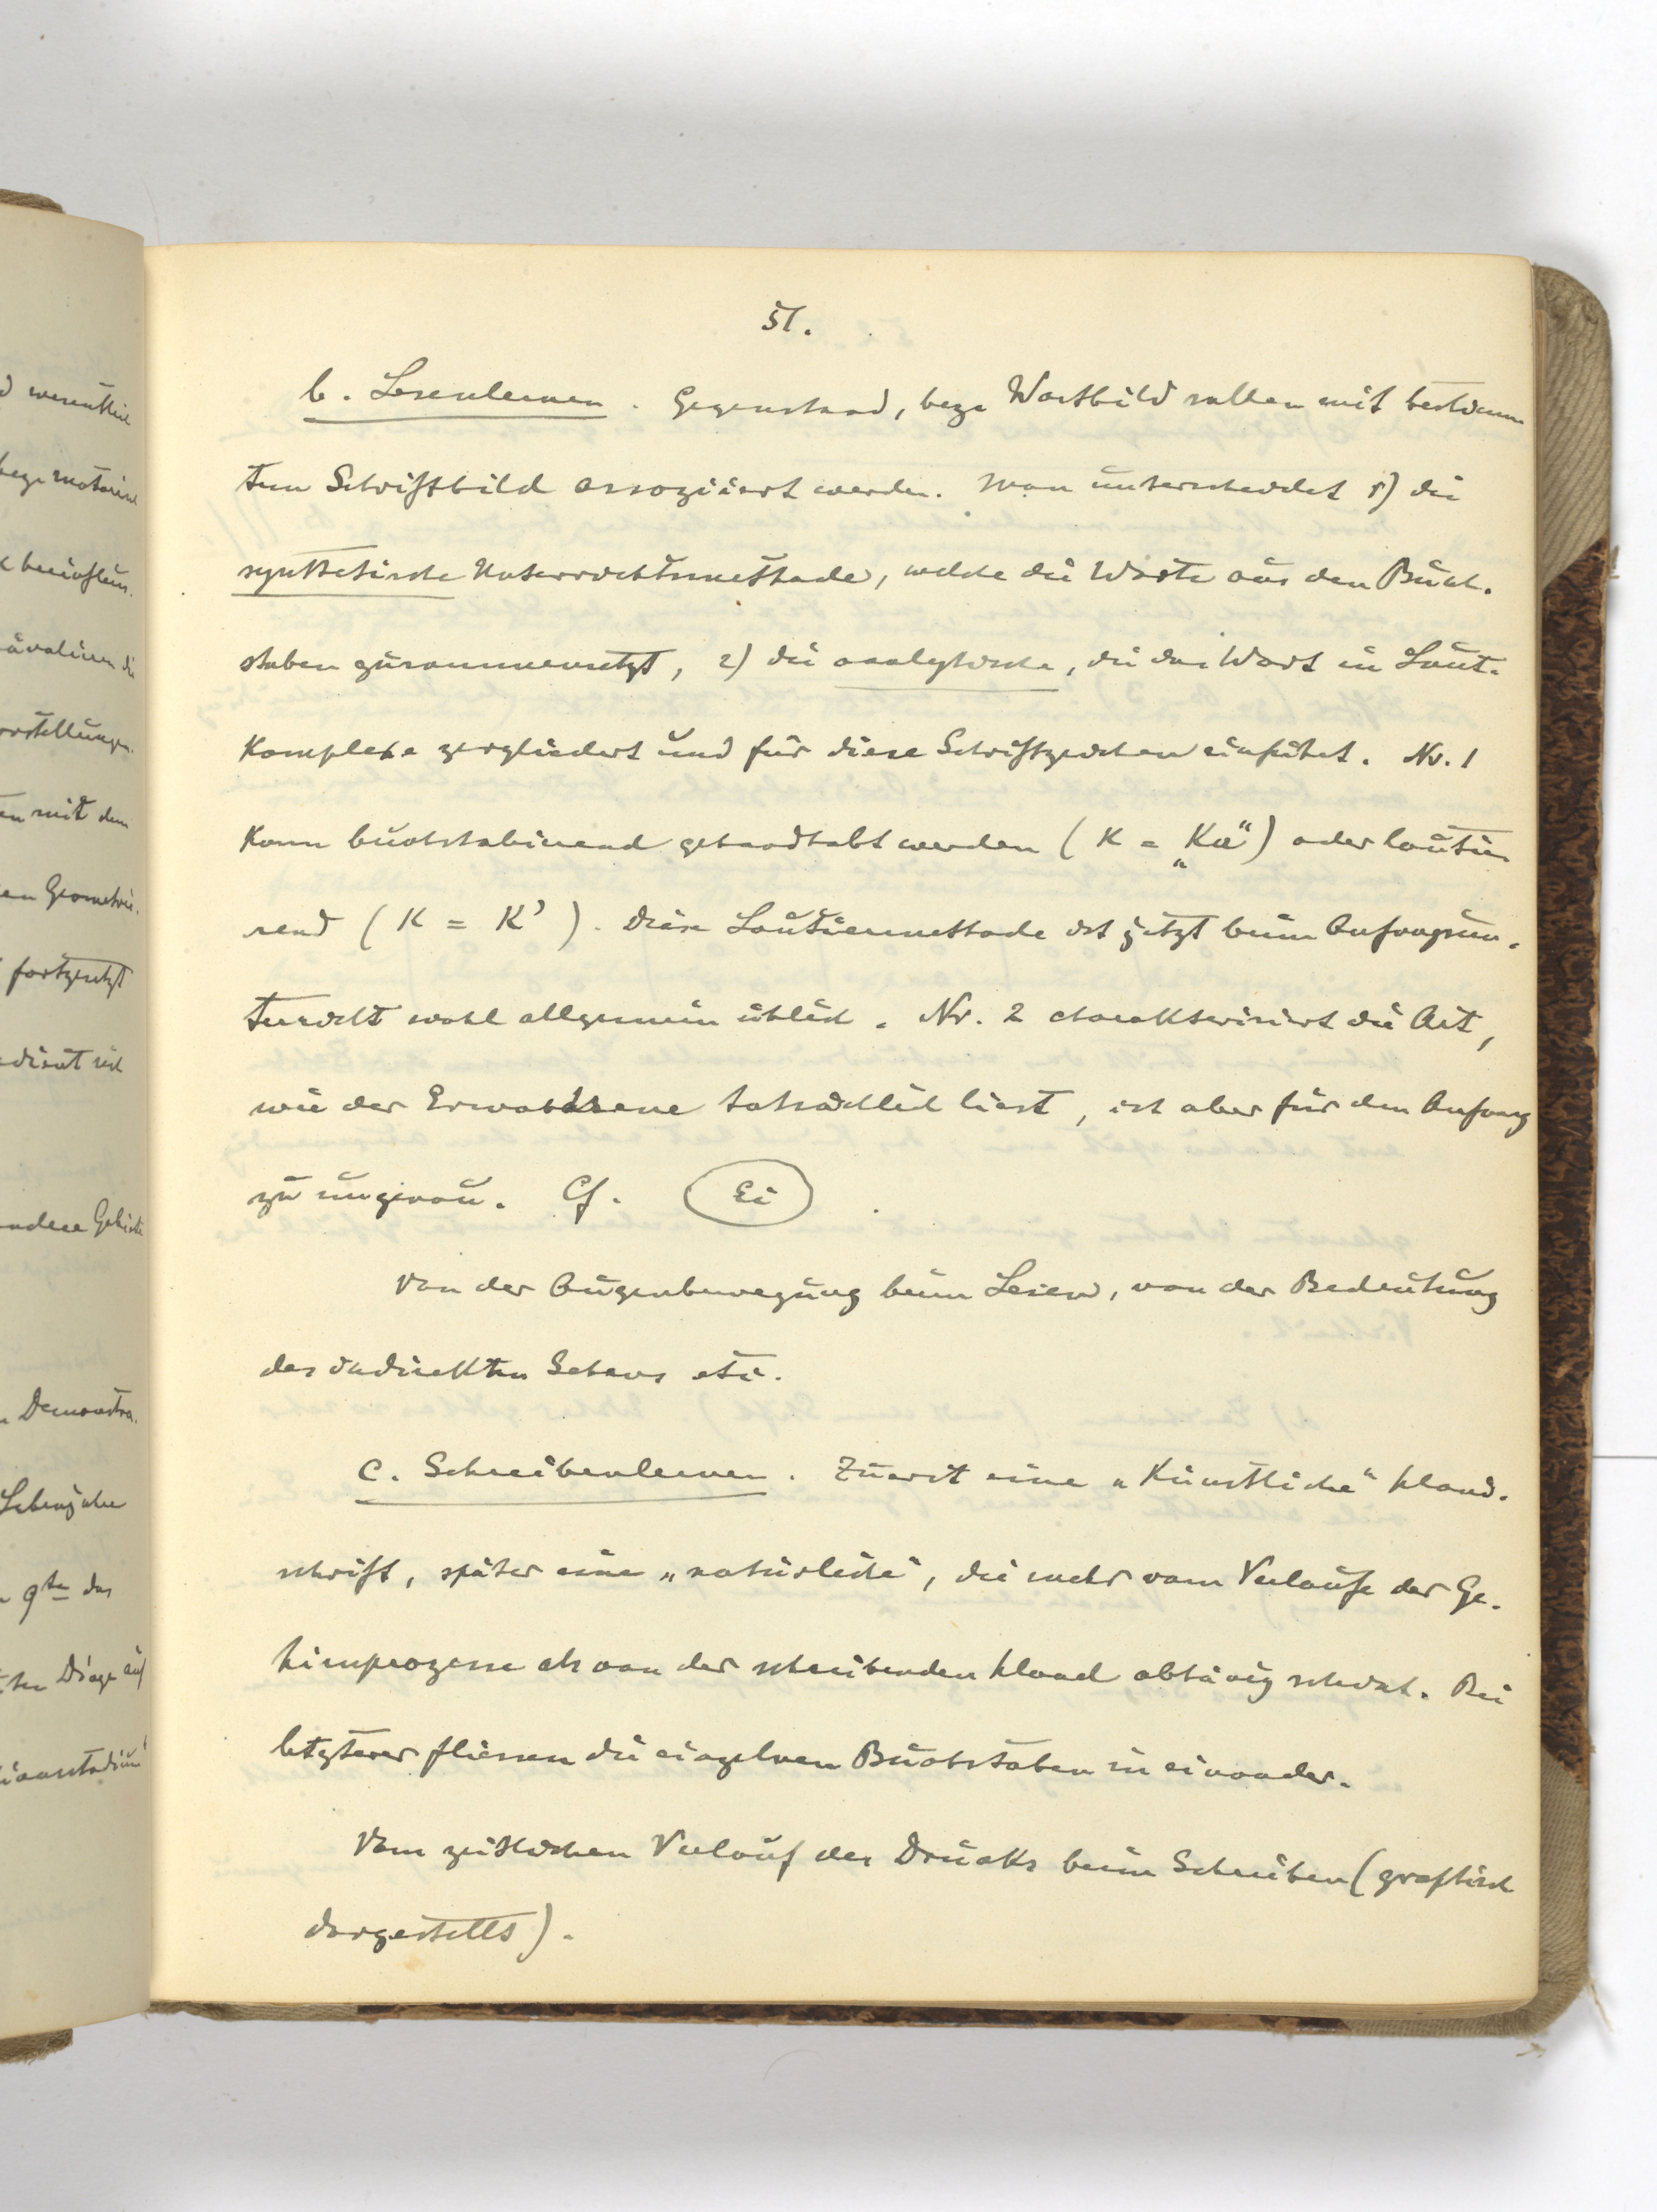 d wesentlich
bezw. motorisch
en mit dem
en Geometrie.
fortgesetzt
dient sich
andere Gebiete
n Demonstra.
Lebensjahre
9ten das
ten Dinge auf
51.
b. Lesenlernen. Gegenstand, bezw. Wortbild sollen mit bestimm
tem Schriftbild assoziiert werden. Man unterscheidet 1) die
synthetische Unterrichtsmethode, welche die Worte aus den Buch-
staben zusammensetzt, 2) die analytische, die das Wort in Laut-
komplexe zergliedert und für diese Schriftzeichen einführt. Nr. 1
kann buchstabierend gehandhabt werden (K = „Ka“) oder lautie
rend (K = K’). Diese Lautiermethode ist jetzt beim Anfangsun-
terricht wohl allgemein üblich. Nr. 2 charakterisiert die Art,
wie der Erwachsene tatsächlich liest, ist aber für den Anfang
zu ungenau. Cf. Ei.
Von der Augenbewegung beim Lesen, von der Bedeutung
des indirekten Sehens etc.
c. Schreibenlernen. Zuerst eine „künstliche“ Hand-
schrift, später eine „natürliche“, die mehr vom Verlaufe der Ge-
hirnprozesse als von der schreibenden Hand abhängig scheint. Bei
letzterer fliessen die einzelnen Buchstaben in einander.
Vom zeitlichen Verlauf des Drucks beim Schreiben (graphisch
dargestellt).